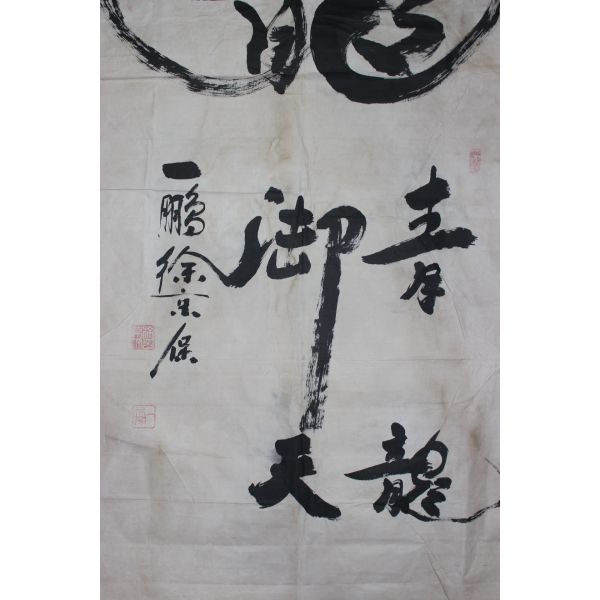 青龍
御天
一鵬徐京保